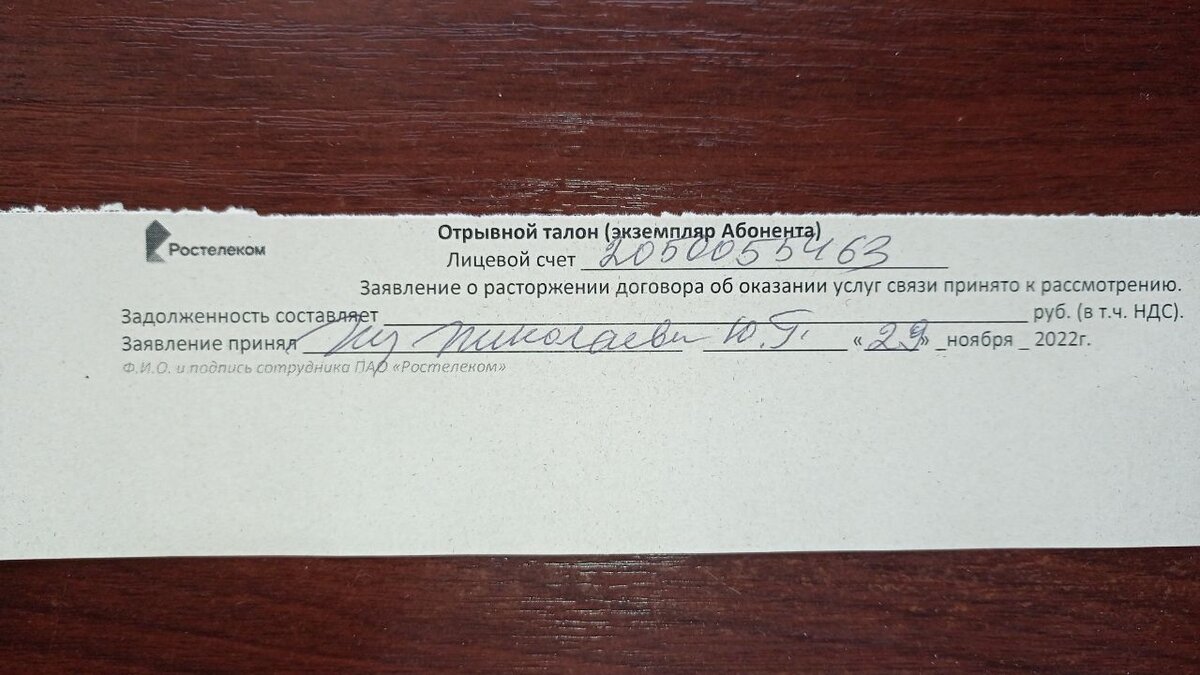 Ростелеком
Отрывной талон (экземпляр Абонента)
Лицевой счет 2050055463
Заявление о расторжении договора об оказании услуг связи принято к рассмотрению.
Задолженность составляет ____ руб. (в т.ч. НДС).
Заявление принял Николаева Ю.Г. «29» _ноября _ 2022г.
Ф.И.О. и подпись сотрудника ПАО «Ростелеком»